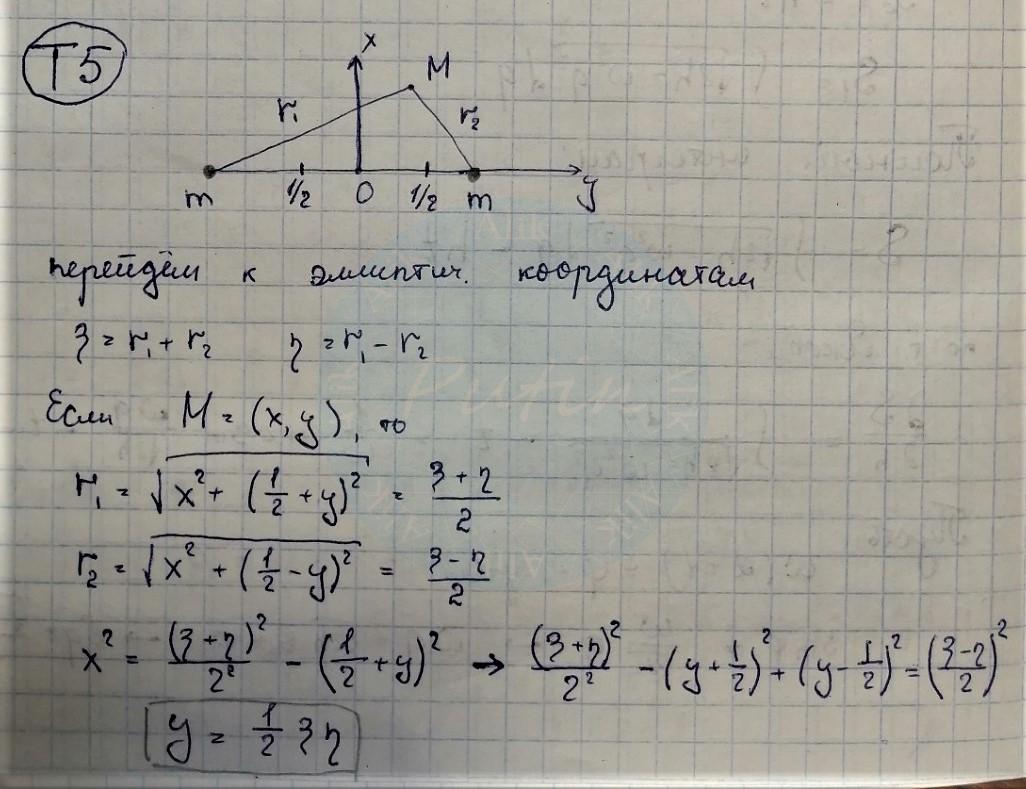 T5
x
M
r₁ r₂
m 1/2 0 1/2 m y
перейдём к эллиптич. координатам
ξ = r₁ + r₂ η = r₁ - r₂
Если M = (x, y), то
r₁ = √(x² + (1/2 + y)²) = (ξ + η)/2
r₂ = √(x² + (1/2 - y)²) = (ξ - η)/2
x² = (ξ + η)²/2² - (1/2 + y)² → (ξ + η)²/2² - (y + 1/2)² + (y - 1/2)² = ((ξ - η)/2)²
y = 1/2 ξ η
Putin